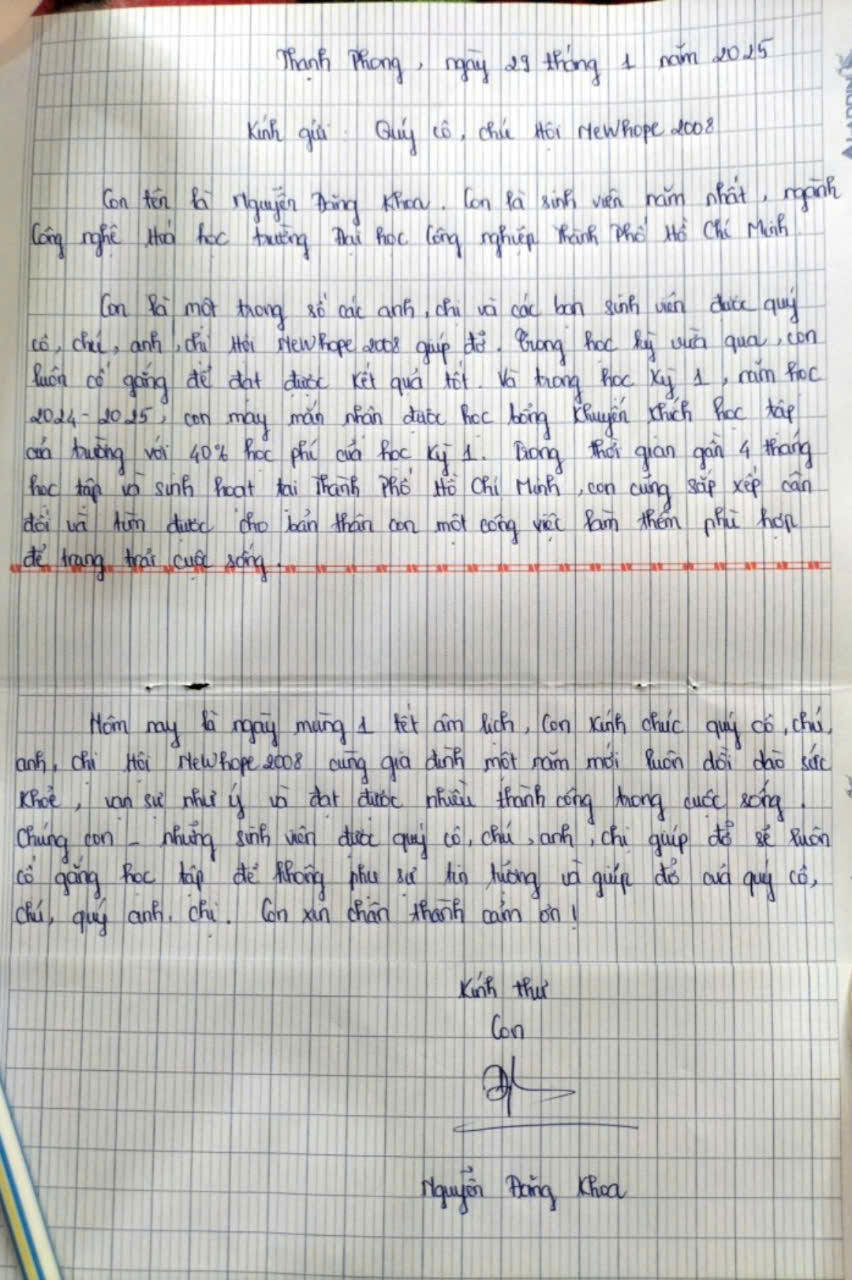 Thạnh Phong, ngày 29 tháng 1 năm 2025
Kính gửi: Quý cô, chú Hội NewHope 2008
Con tên là Nguyễn Đăng Khoa. Con là sinh viên năm nhất, ngành
Công nghệ Hoá học trường Đại học Công nghiệp Thành Phố Hồ Chí Minh.
Con là một trong số các anh, chị và các bạn sinh viên được quý
cô, chú, anh, chị Hội NewHope 2008 giúp đở. Trong học kỳ vừa qua, con
luôn cố gắng để đạt được kết quả tốt. Và trong học kỳ 1, năm học
2024-2025, con may mắn nhận được học bổng khuyến khích học tập
của trường với 40% học phí của học kỳ 1. Trong thời gian gần 4 tháng
học tập và sinh hoạt tại Thành Phố Hồ Chí Minh, con cũng sắp xếp cân
đối và tìm được cho bản thân con một công việc làm thêm phù hợp
để trang trải cuộc sống.
Hôm nay là ngày mùng 1 tết âm lịch, Con kính chúc quý cô, chú,
anh, chị Hội NewHope 2008 cùng gia đình một năm mới luôn dồi dào sức
khoẻ, vạn sự như ý và đạt được nhiều thành công trong cuộc sống.
Chúng con - những sinh viên được quý cô, chú, anh, chị giúp đở sẽ luôn
cố gắng học tập để không phụ sự tin tưởng và giúp đở của quý cô,
chú, quý anh, chị. Con xin chân thành cảm ơn!
Kính thư
Con
Nguyễn Đăng Khoa